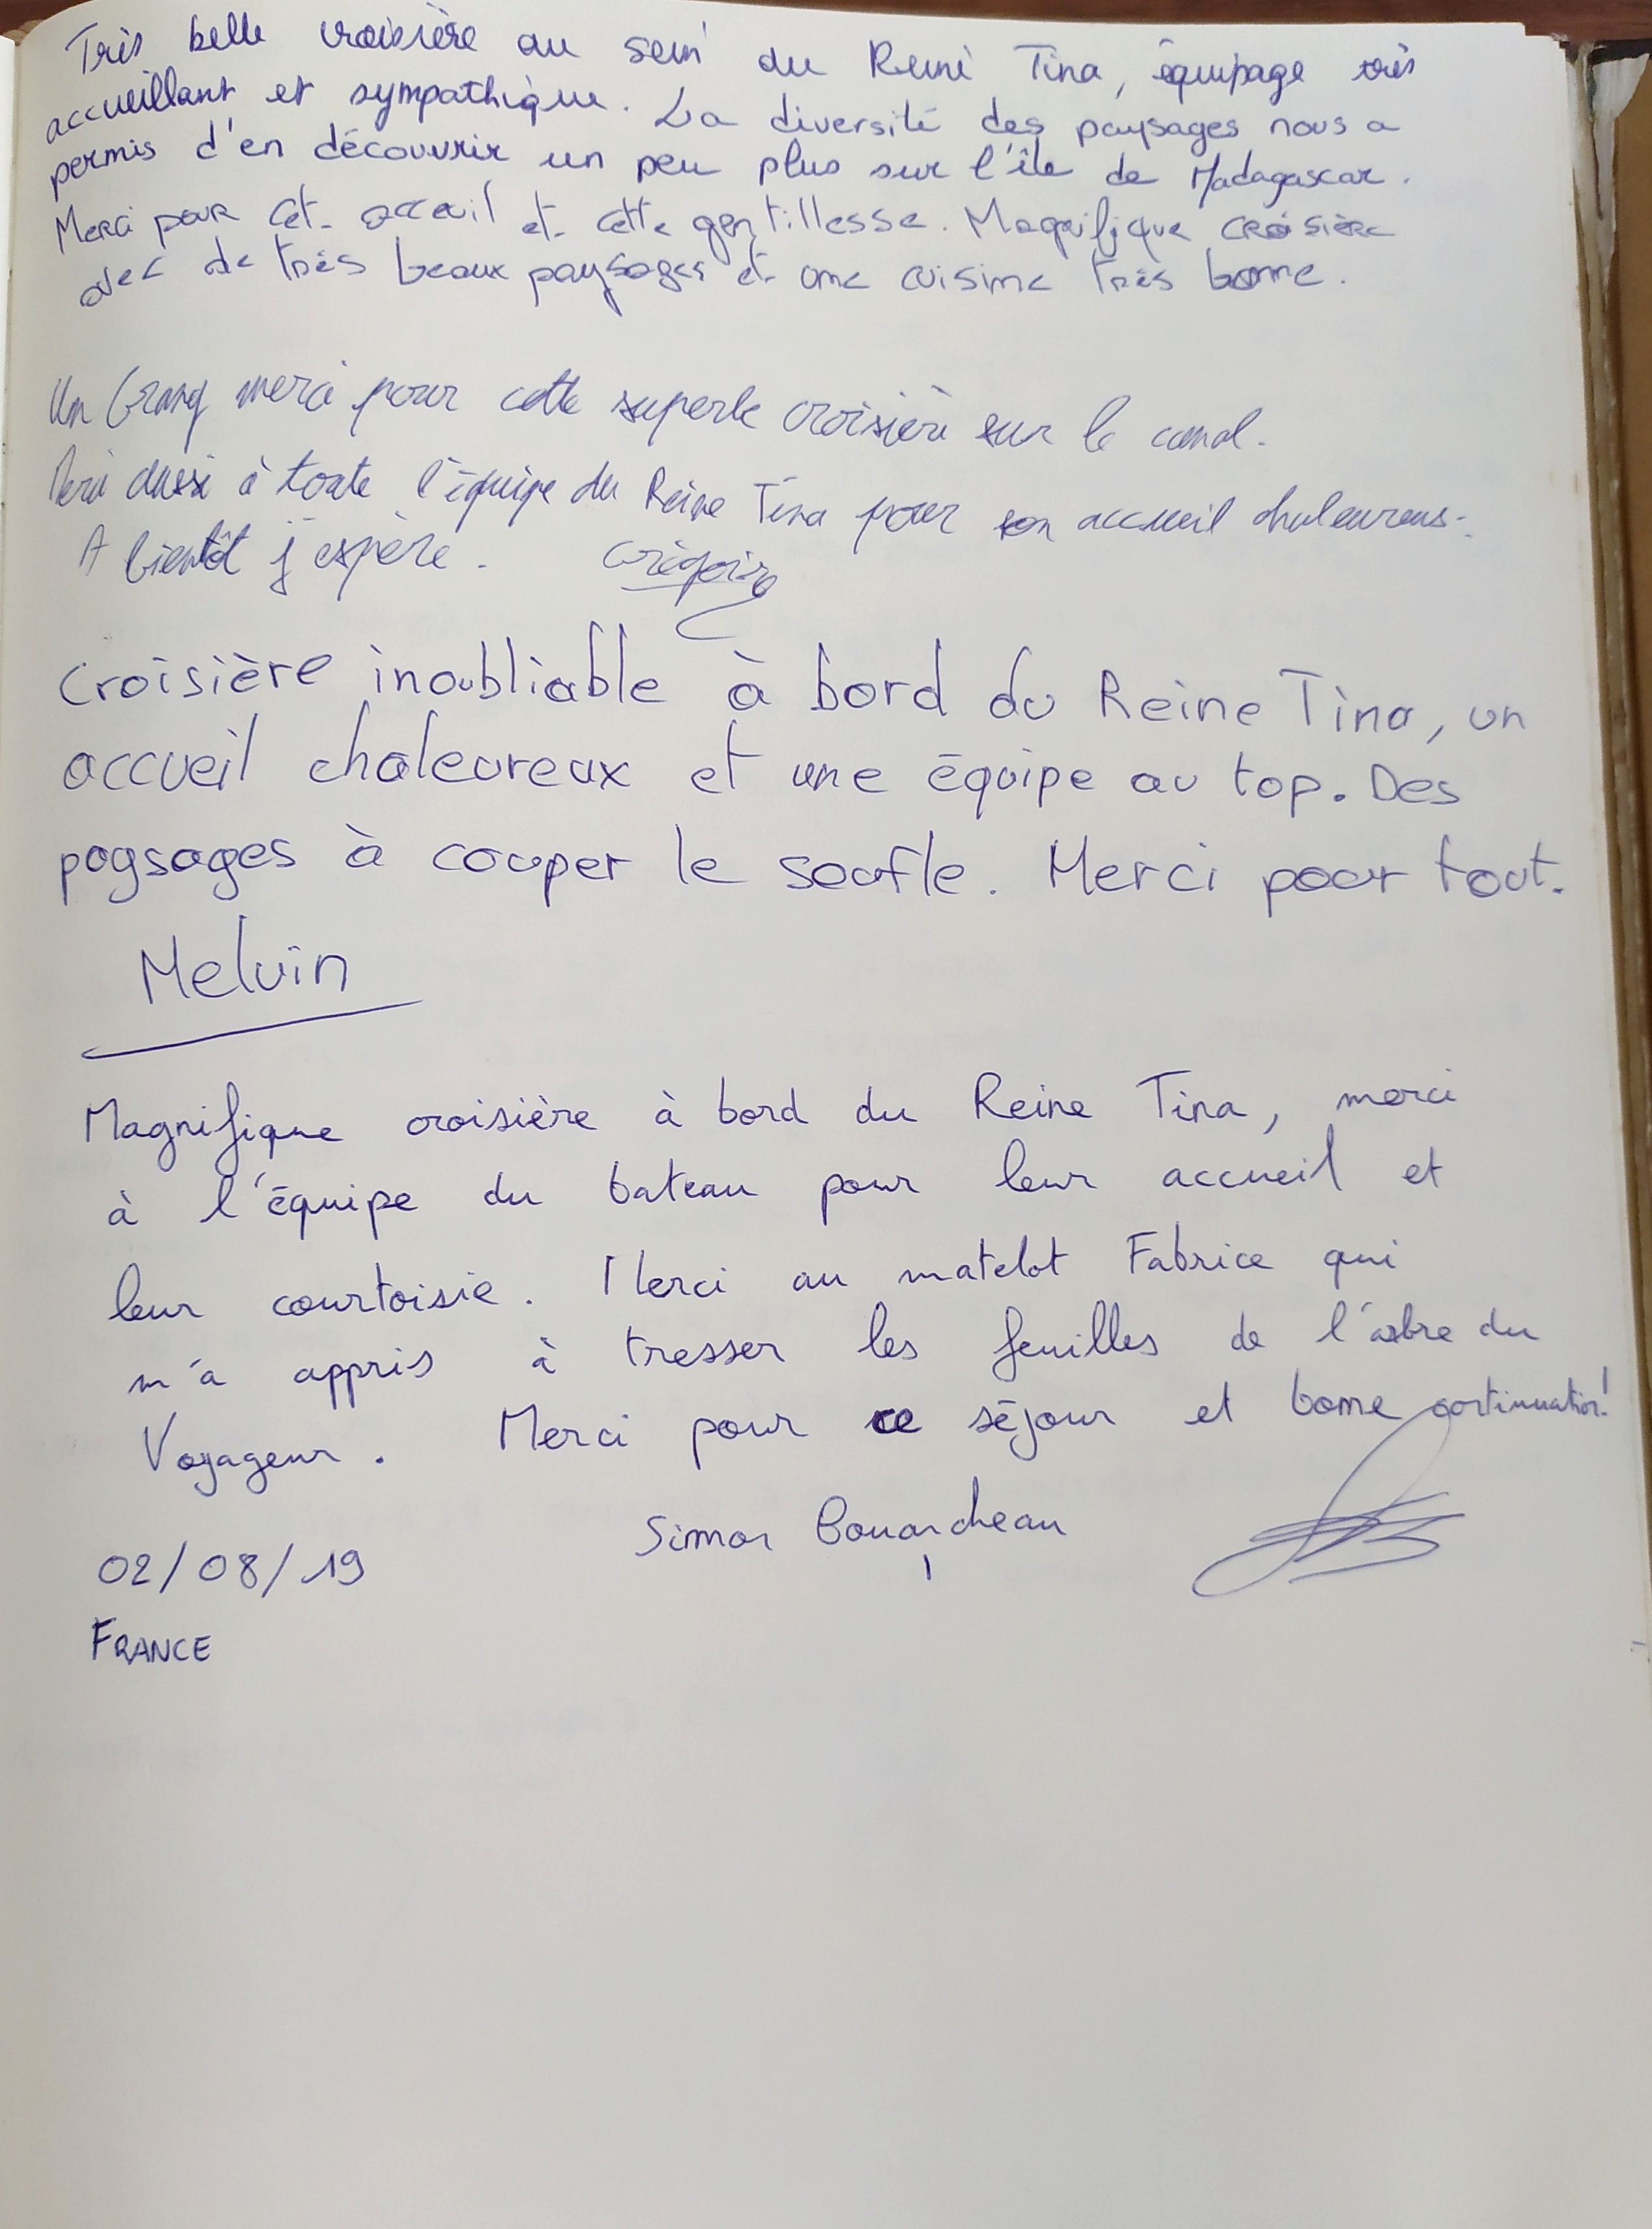 Très belle croisière au sein du Reine Tina, équipage très
accueillant et sympathique. La diversité des paysages nous a
permis d'en découvrir un peu plus sur l'île de Madagascar.
Merci pour cet acceuil et cette gentillesse. Magnifique croisière
avec de très beaux paysages et une cuisine très bonne.
Un Grand merci pour cette superbe croisière sur le canal.
Merci aussi à toute l'équipe du Reine Tina pour son accueil chaleureux.
A bientôt j'espère. Grégoire
Croisière inoubliable à bord du Reine Tina, un
accueil chaleureux et une équipe au top. Des
paysages à couper le soufle. Merci pour tout.
Melvin
Magnifique croisière à bord du Reine Tina, merci
à l'équipe du bateau pour leur accueil et
leur courtoisie. Merci au matelot Fabrice qui
m'a appris à tresser les feuilles de l'arbre du
Voyageur. Merci pour ce séjour et bonne continuation!
Simon
02/08/19
FRANCE